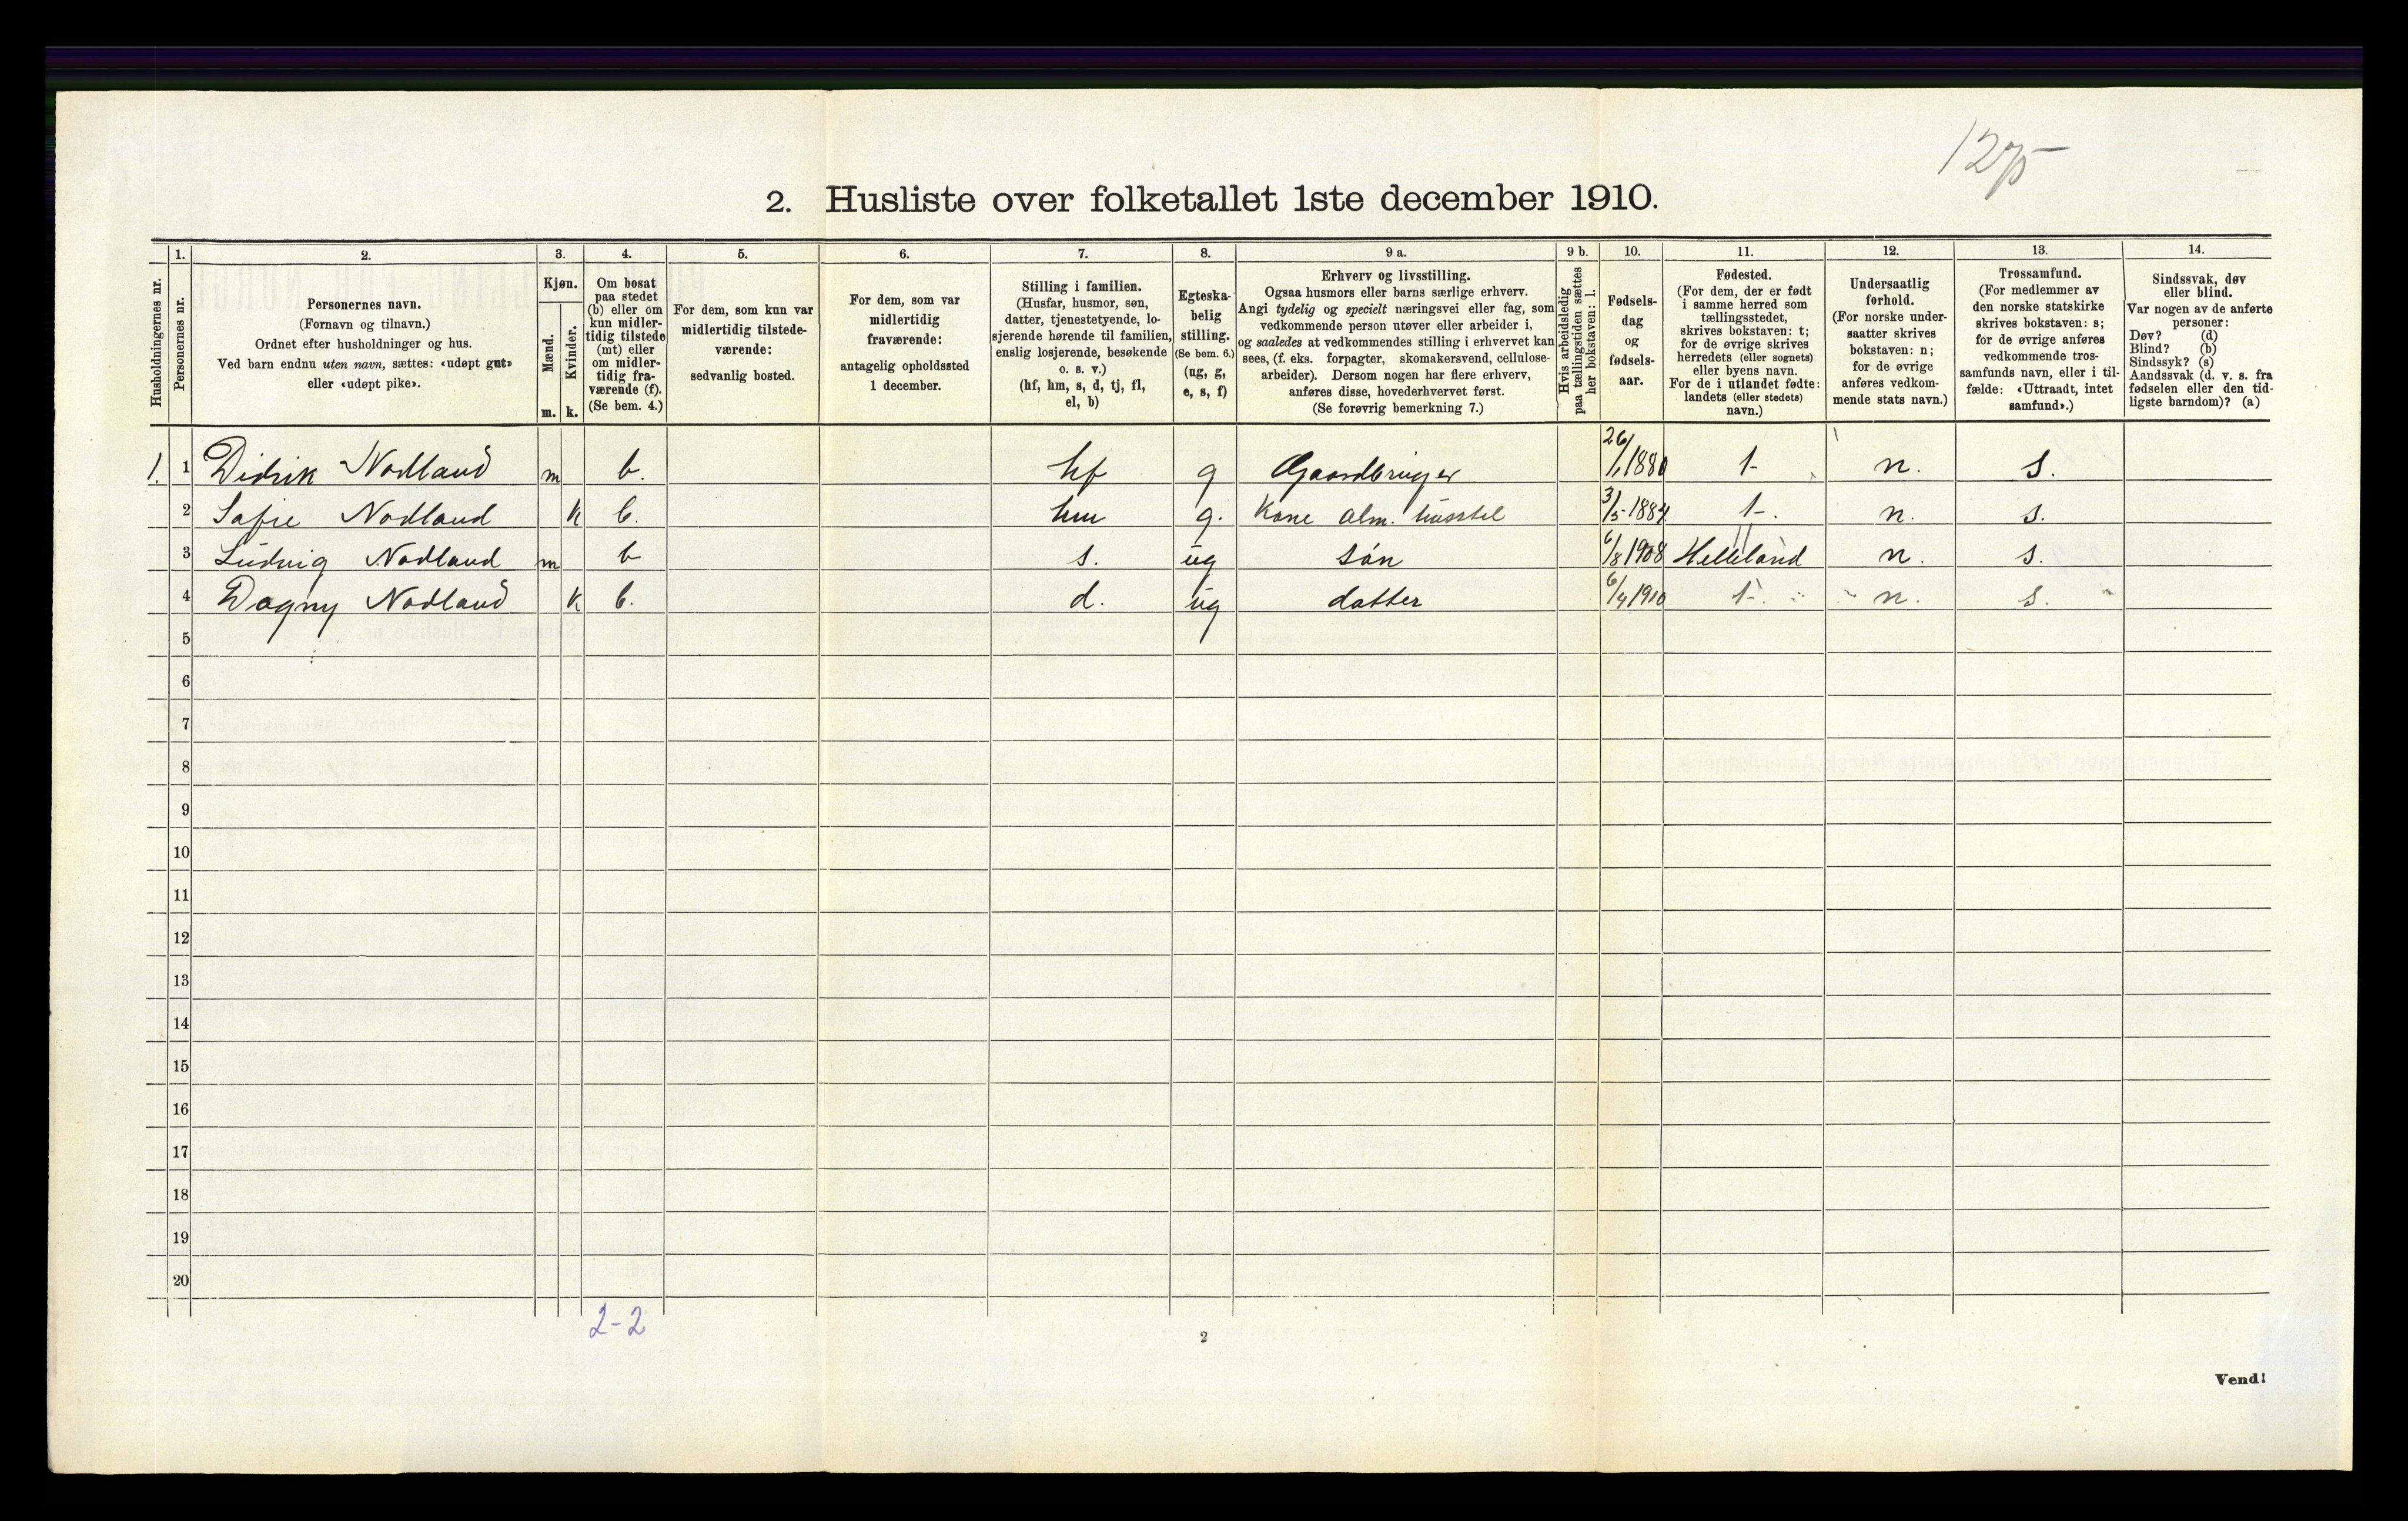 1275
2. Husliste over folketallet 1ste december 1910.
Husholdningernes nr.
1. Personernes nr.
2. Personernes navn. (Fornavn og tilnavn.) Ordnet efter husholdninger og hus. Ved barn endnu uten navn, sættes: «udøpt gut» eller «udøpt pike».
3. Kjøn. Mænd. m. Kvinder. k.
4. Om bosat paa stedet (b) eller om kun midlertidig tilstede (mt) eller om midlertidig fraværende (f). (Se bem. 4.)
5. For dem, som kun var midlertidig tilstedeværende: sedvanlig bosted.
6. For dem, som var midlertidig fraværende: antagelig opholdssted 1 december.
7. Stilling i familien. (Husfar, husmor, søn, datter, tjenestetyende, losjerende hørende til familien, enslig losjerende, besøkende o. s. v.) (hf, hm, s, d, tj, fl, el, b)
8. Egteskabelig stilling. (Se bem. 6.) (ug, g, e, s, f)
9 a. Erhverv og livsstilling. Ogsaa husmors eller barns særlige erhverv. Angi tydelig og specielt næringsvei eller fag, som vedkommende person utøver eller arbeider i, og saaledes at vedkommendes stilling i erhvervet kan sees, (f. eks. forpagter, skomakersvend, cellulosearbeider). Dersom nogen har flere erhverv, anføres disse, hovederhvervet først. (Se forøvrig bemerkning 7.)
9 b. Hvis arbeidsledig paa tællingstiden sættes her bokstaven: l.
10. Fødselsdag og fødselsaar.
11. Fødested. (For dem, der er født i samme herred som tællingsstedet, skrives bokstaven: t; for de øvrige skrives herredets (eller sognets) eller byens navn. For de i utlandet fødte: landets (eller stedets) navn.)
12. Undersaatlig forhold. (For norske undersaatter skrives bokstaven: n; for de øvrige anføres vedkommende stats navn.)
13. Trossamfund. (For medlemmer av den norske statskirke skrives bokstaven: s; for de øvrige anføres vedkommende trossamfunds navn, eller i tilfælde: «Uttraadt, intet samfund».)
14. Sindssvak, døv eller blind. Var nogen av de anførte personer: Døv? (d) Blind? (b) Sindssyk? (s) Aandssvak (d. v. s. fra fødselen eller den tidligste barndom)? (a)
1. 1 Didrik Nodland m b. hf g Gaardbruger 26/1 1880 t n. s.
2 Sofie Nodland k b. hm g. Kone alm. husstel 3/5-1884 t. n. s.
3 Ludvig Nodland m b s. ug søn 6/8 1908 Helleland n. s.
4 Dagny Nodland k b. d. ug datter 6/4 1910 t. n. s.
5
6
7
8
9
10
11
12
13
14
15
16
17
18
19
20
2-2
2
Vend!